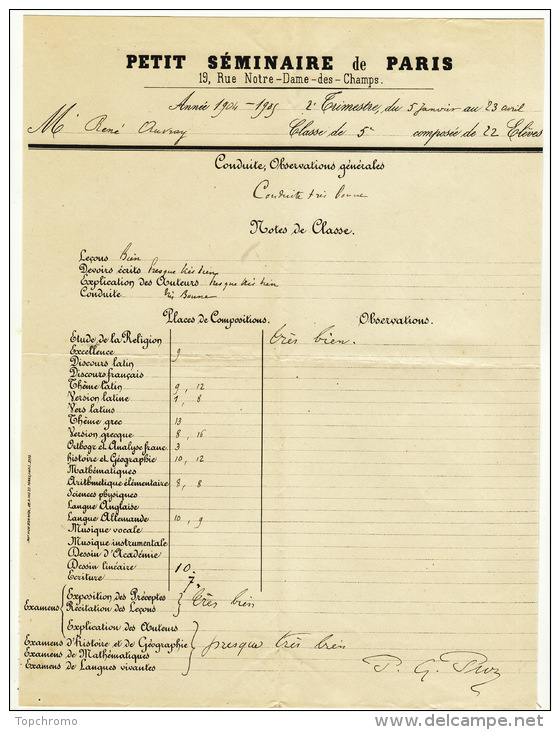 PETIT SÉMINAIRE de PARIS
19, Rue Notre-Dame-des-Champs.
Année 1904-1905 2e Trimestre, du 5 janvier au 23 avril
Mr René Auvray Classe de 5e composée de 22 Elèves
Conduite, Observations générales
Conduite très bonne
Notes de Classe.
Leçons Bien
Devoirs écrits Presque très bien
Explication des Auteurs Presque très bien
Conduite très Bonne
Places de Compositions. Observations.
Etude de la Religion très bien.
Excellence 9
Discours latin
Discours français
Thème latin 9, 12
Version latine 1, 8
Vers latins
Thème grec 13
Version grecque 8, 16
Orthogr et Analyse franc. 3
histoire et Géographie 10, 12
Mathématiques
Arithmétique élémentaire 8, 8
Sciences physiques
Langue Anglaise
Langue Allemande 10, 9
Musique vocale
Musique instrumentale
Dessin d'Académie
Dessin linéaire 10.
Ecriture 7
Examens Exposition des Préceptes
Récitation des Leçons très bien
Explication des Auteurs
Examens d'histoire et de Géographie presque très bien
Examens de Mathématiques
Examens de Langues vivantes
Topchromo
www.delcampe.net